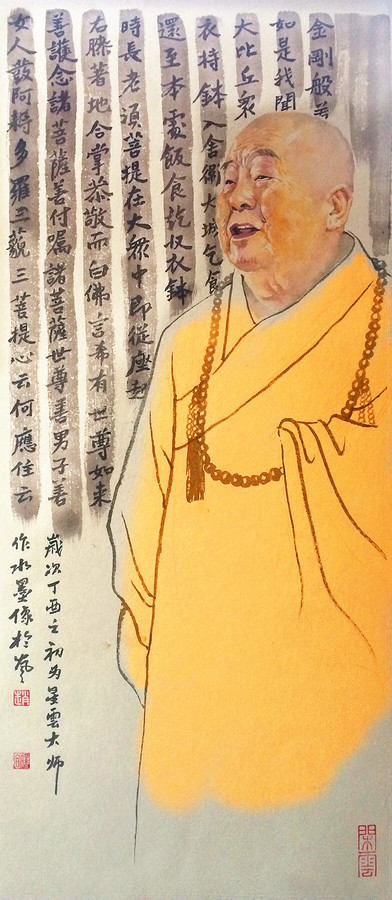 金剛般若
如是我聞
大比丘衆
衣持鉢入舍衛大城乞食
還至本處飯食訖収衣鉢
時長老須菩提在大衆中即從座起
右膝著地合掌恭敬而白佛言希有世尊如来
善護念諸菩薩善付嘱諸菩薩世尊善男子善
女人發阿耨多羅三藐三菩提心云何應住云
歲次丁酉之初為星雲大师
作水墨像於嵐